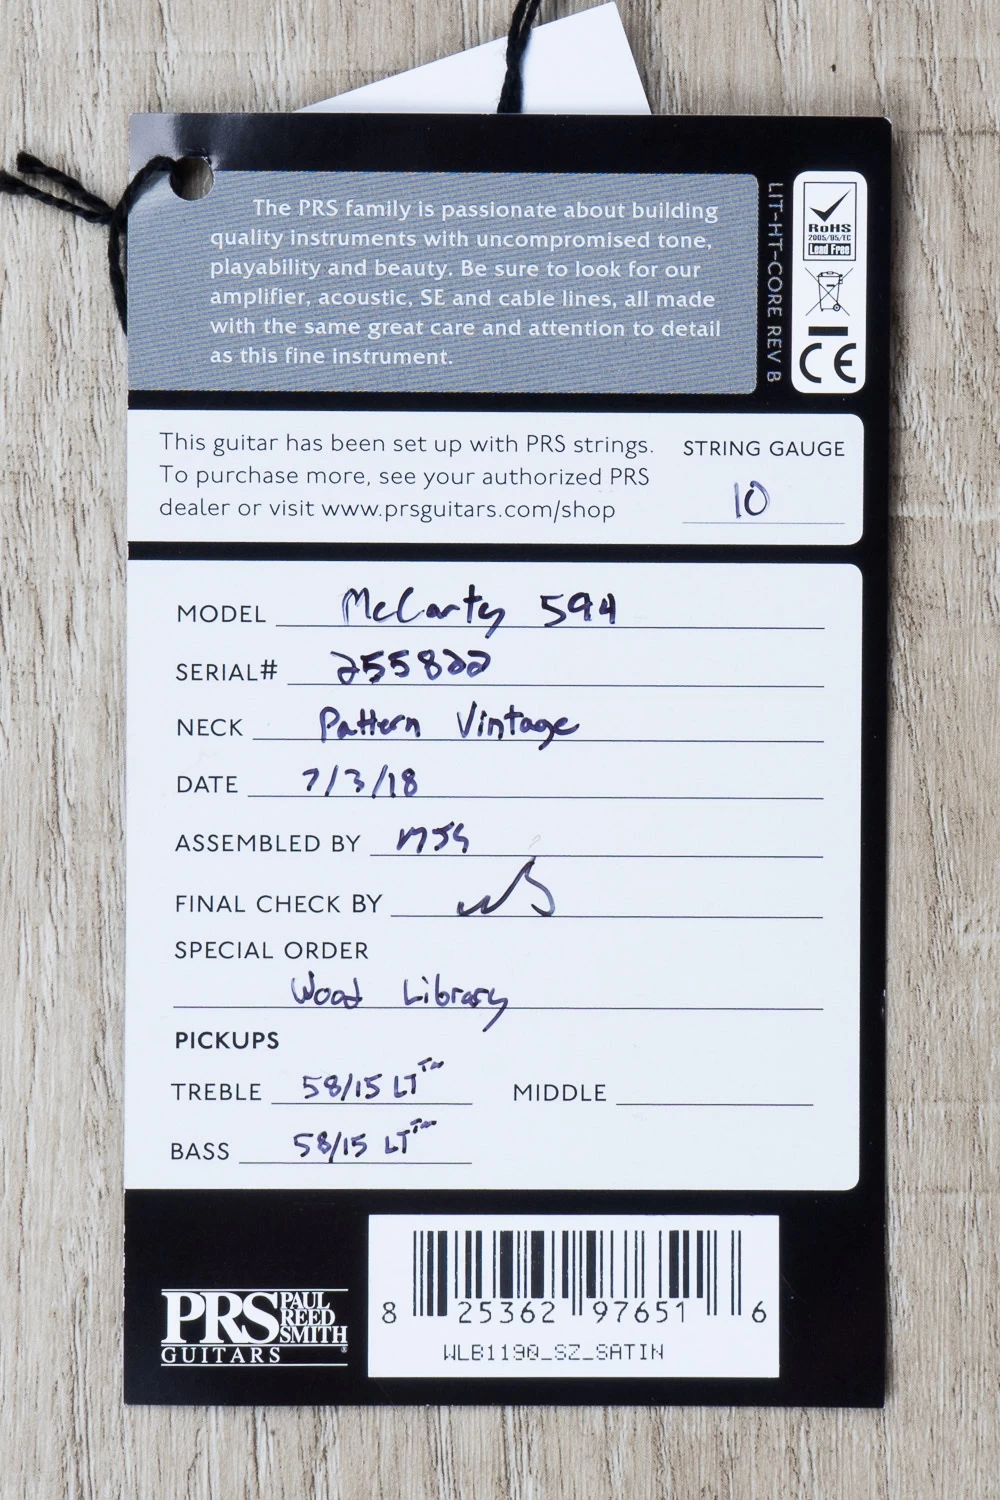 The PRS family is passionate about building
quality instruments with uncompromised tone,
playability and beauty. Be sure to look for our
amplifier, acoustic, SE and cable lines, all made
with the same great care and attention to detail
as this fine instrument.
LIT-HT-CORE REV B
RoHS
2005/95/TC
Lead Free
CE
This guitar has been set up with PRS strings.
To purchase more, see your authorized PRS
dealer or visit www.prsguitars.com/shop
STRING GAUGE
10
MODEL McCarty 594
SERIAL# 255822
NECK Pattern Vintage
DATE 7/3/18
ASSEMBLED BY
FINAL CHECK BY
SPECIAL ORDER
Wood Library
PICKUPS
TREBLE 58/15 LT™ MIDDLE
BASS 58/15 LT™
PRS PAUL REED SMITH
GUITARS
8 25362 97651 6
WLB1190_SZ_SATIN